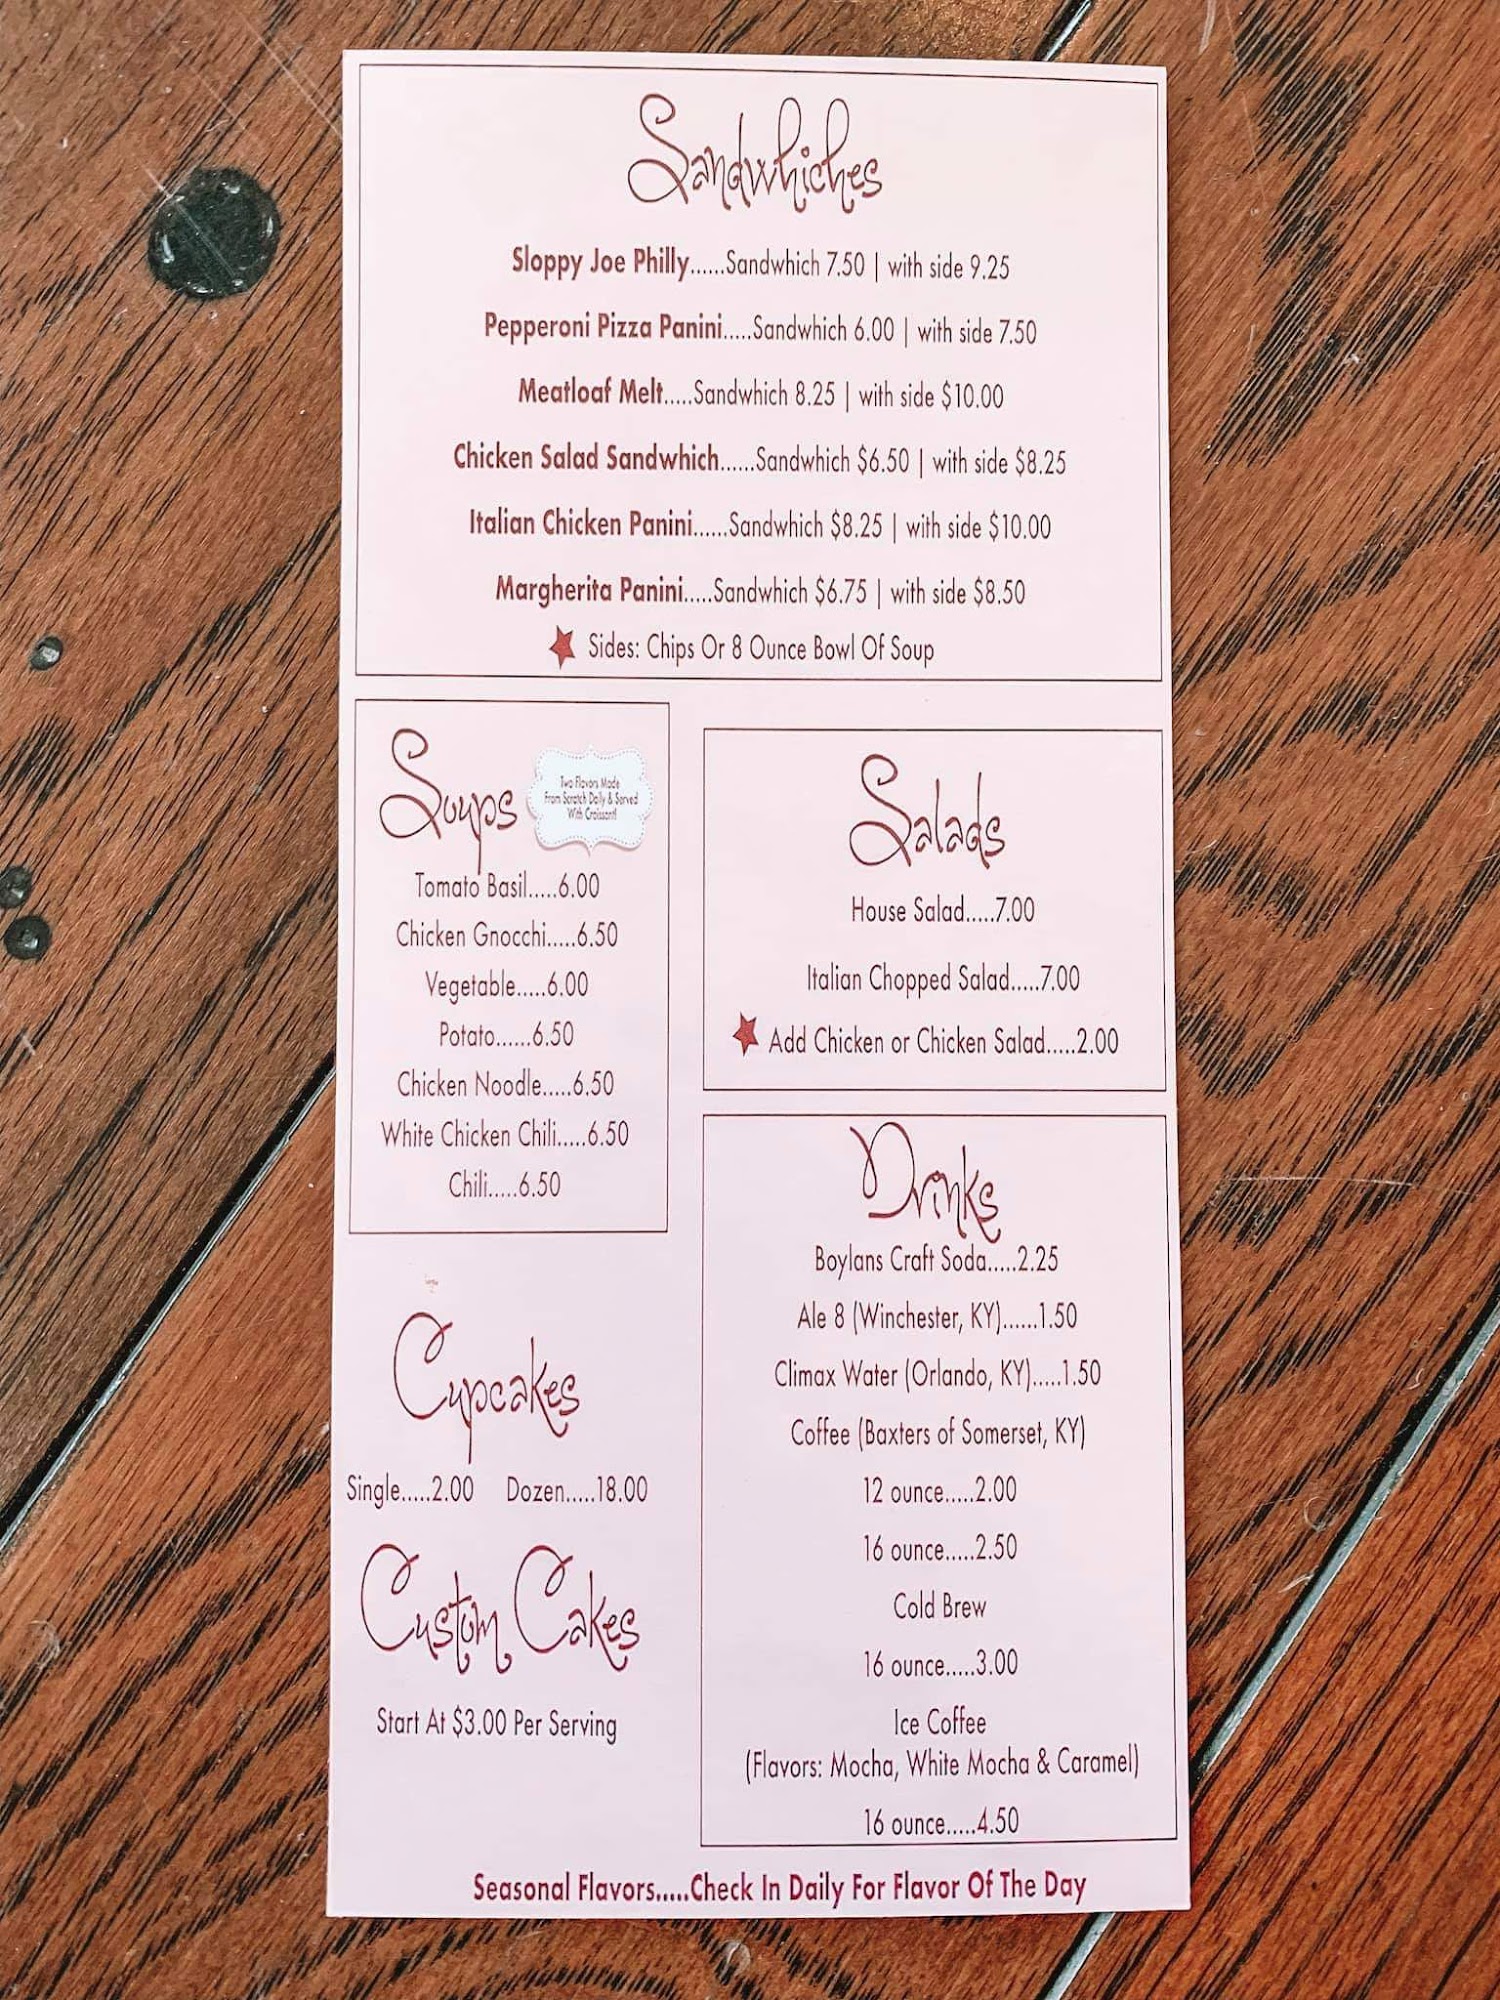 Sandwhiches
Sloppy Joe Philly......Sandwhich 7.50 | with side 9.25
Pepperoni Pizza Panini.....Sandwhich 6.00 | with side 7.50
Meatloaf Melt.....Sandwhich 8.25 | with side $10.00
Chicken Salad Sandwhich......Sandwhich $6.50 | with side $8.25
Italian Chicken Panini......Sandwhich $8.25 | with side $10.00
Margherita Panini.....Sandwhich $6.75 | with side $8.50
Sides: Chips Or 8 Ounce Bowl Of Soup
Soups
Two Flavors Made
From Scratch Daily & Served
With Croissant!
Tomato Basil.....6.00
Chicken Gnocchi.....6.50
Vegetable.....6.00
Potato......6.50
Chicken Noodle.....6.50
White Chicken Chili.....6.50
Chili.....6.50
Salads
House Salad.....7.00
Italian Chopped Salad.....7.00
Add Chicken or Chicken Salad.....2.00
Cupcakes
Single.....2.00 Dozen.....18.00
Custom Cakes
Start At $3.00 Per Serving
Drinks
Boylans Craft Soda.....2.25
Ale 8 (Winchester, KY)......1.50
Climax Water (Orlando, KY).....1.50
Coffee (Baxters of Somerset, KY)
12 ounce.....2.00
16 ounce.....2.50
Cold Brew
16 ounce.....3.00
Ice Coffee
(Flavors: Mocha, White Mocha & Caramel)
16 ounce.....4.50
Seasonal Flavors.....Check In Daily For Flavor Of The Day